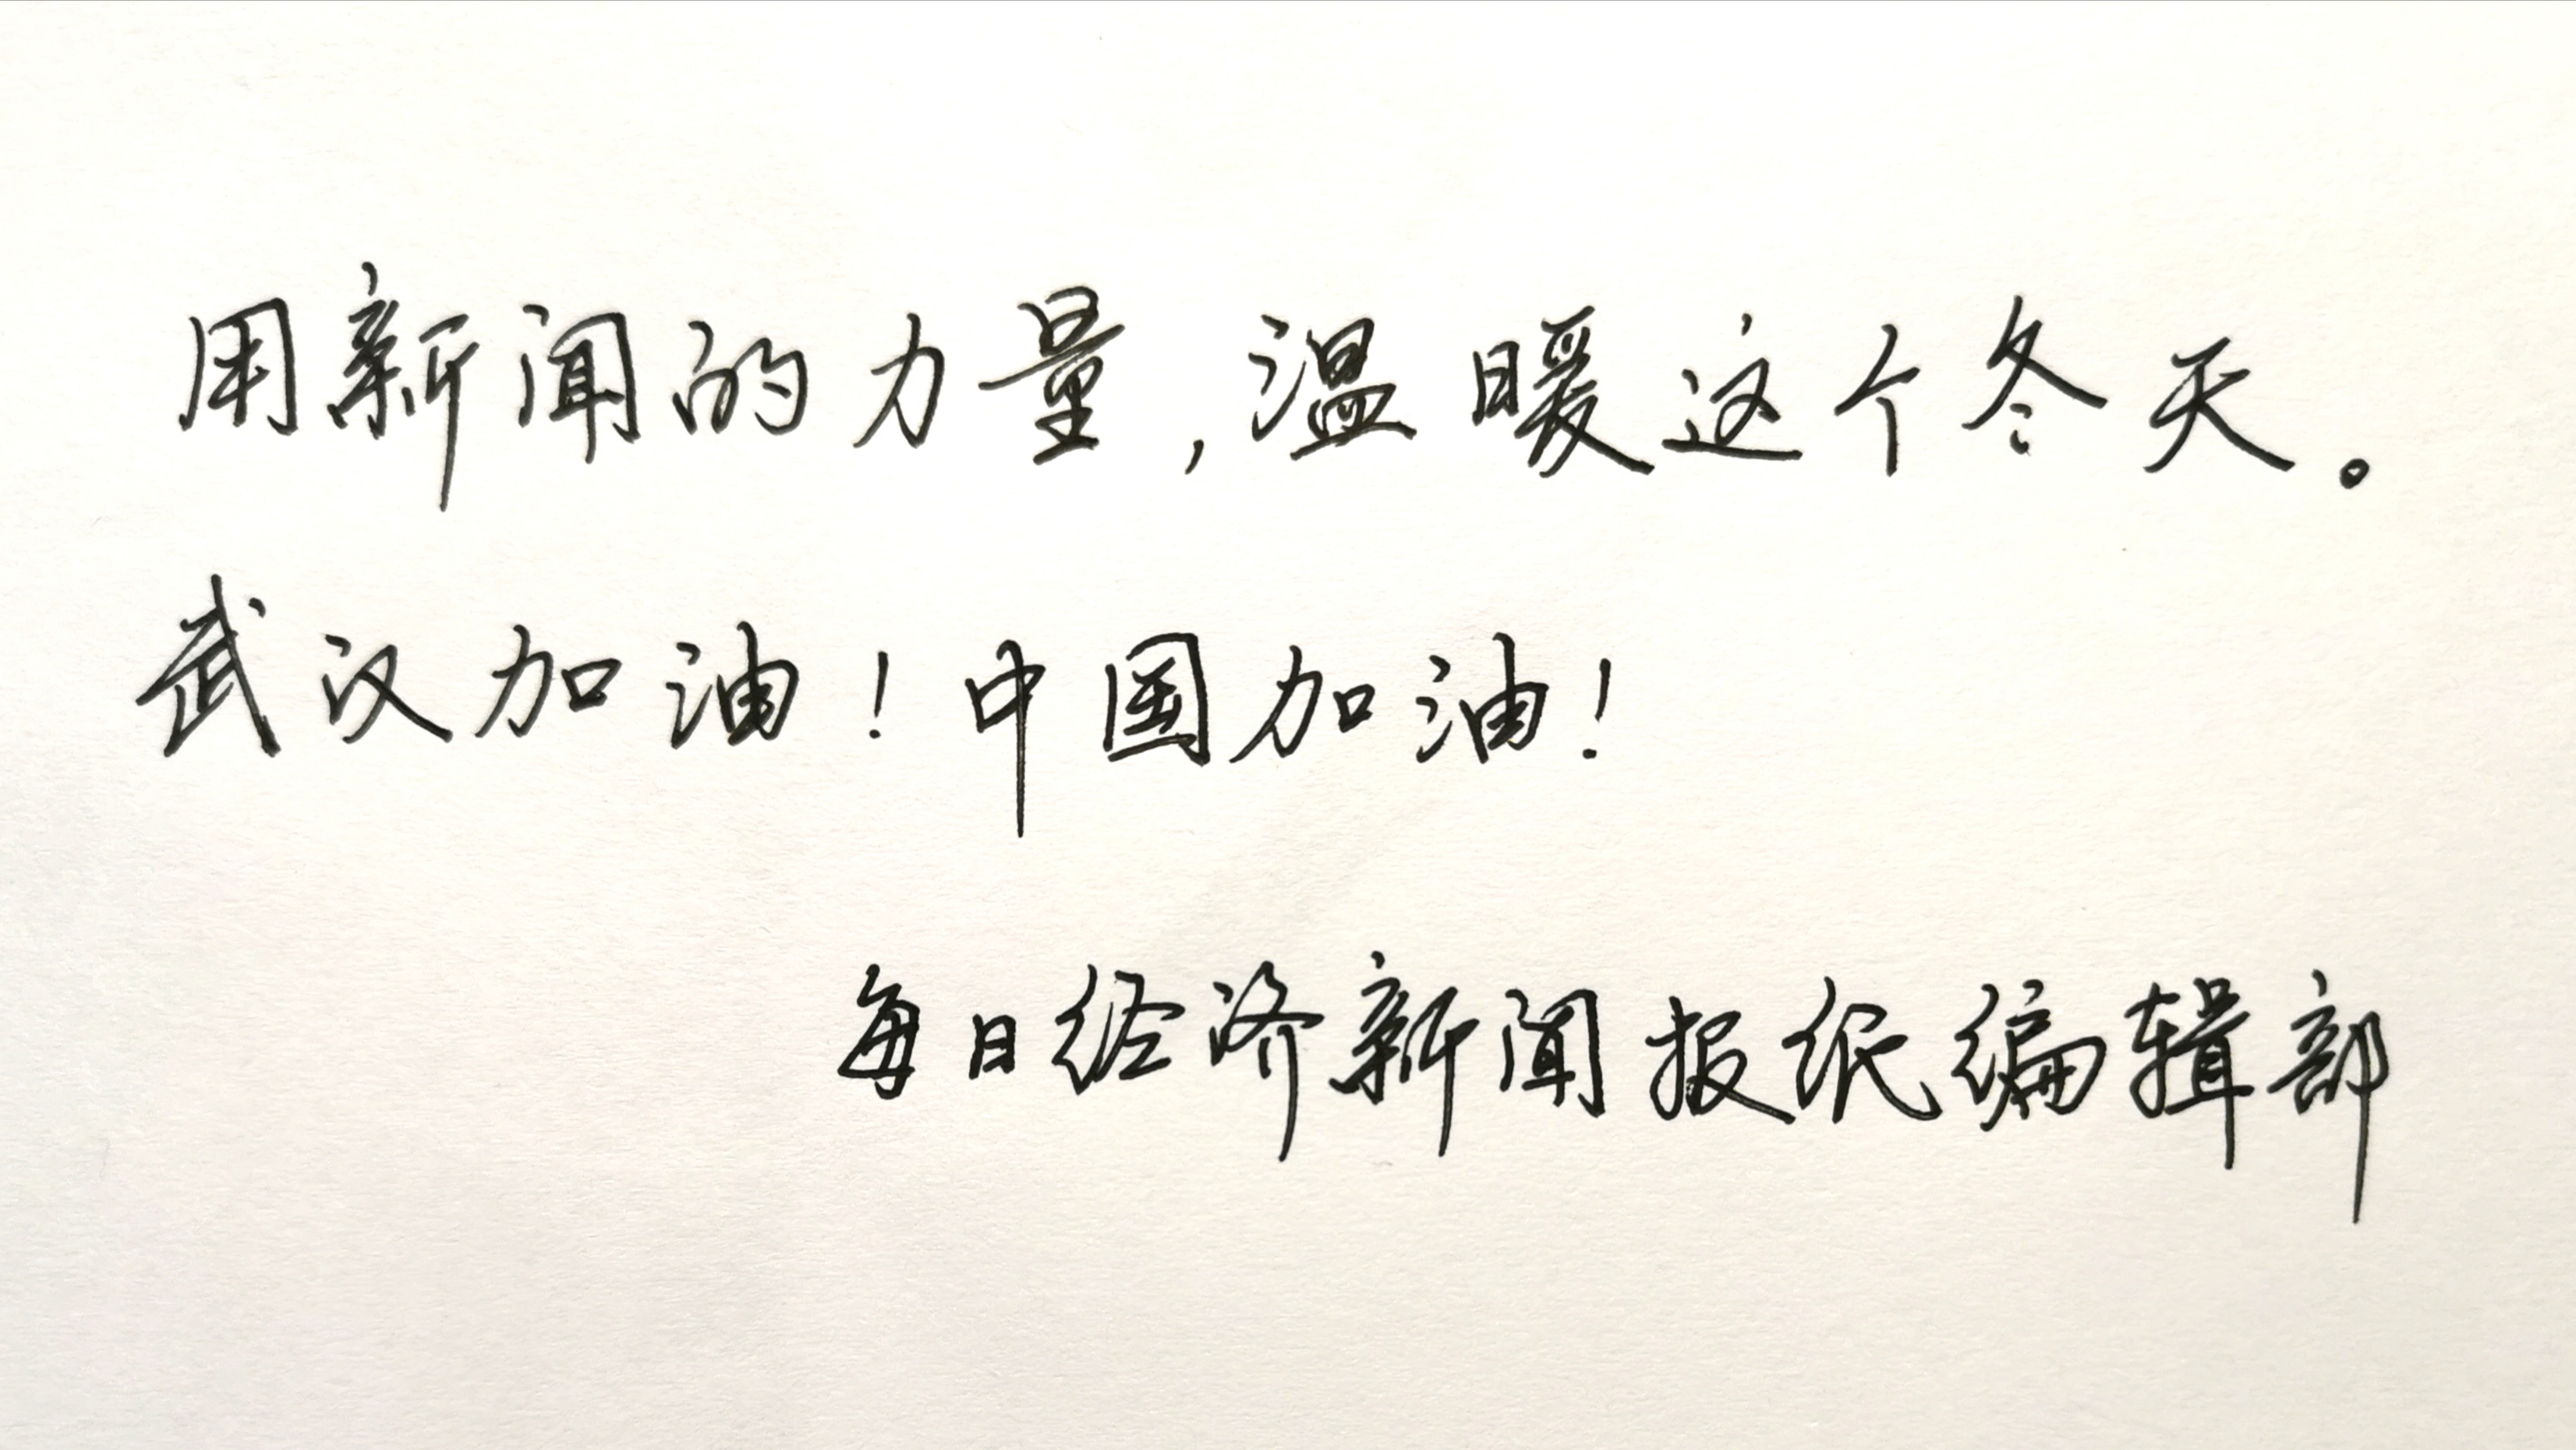 用新闻的力量,温暖这个冬天。
武汉加油!中国加油!
每日经济新闻报纸编辑部